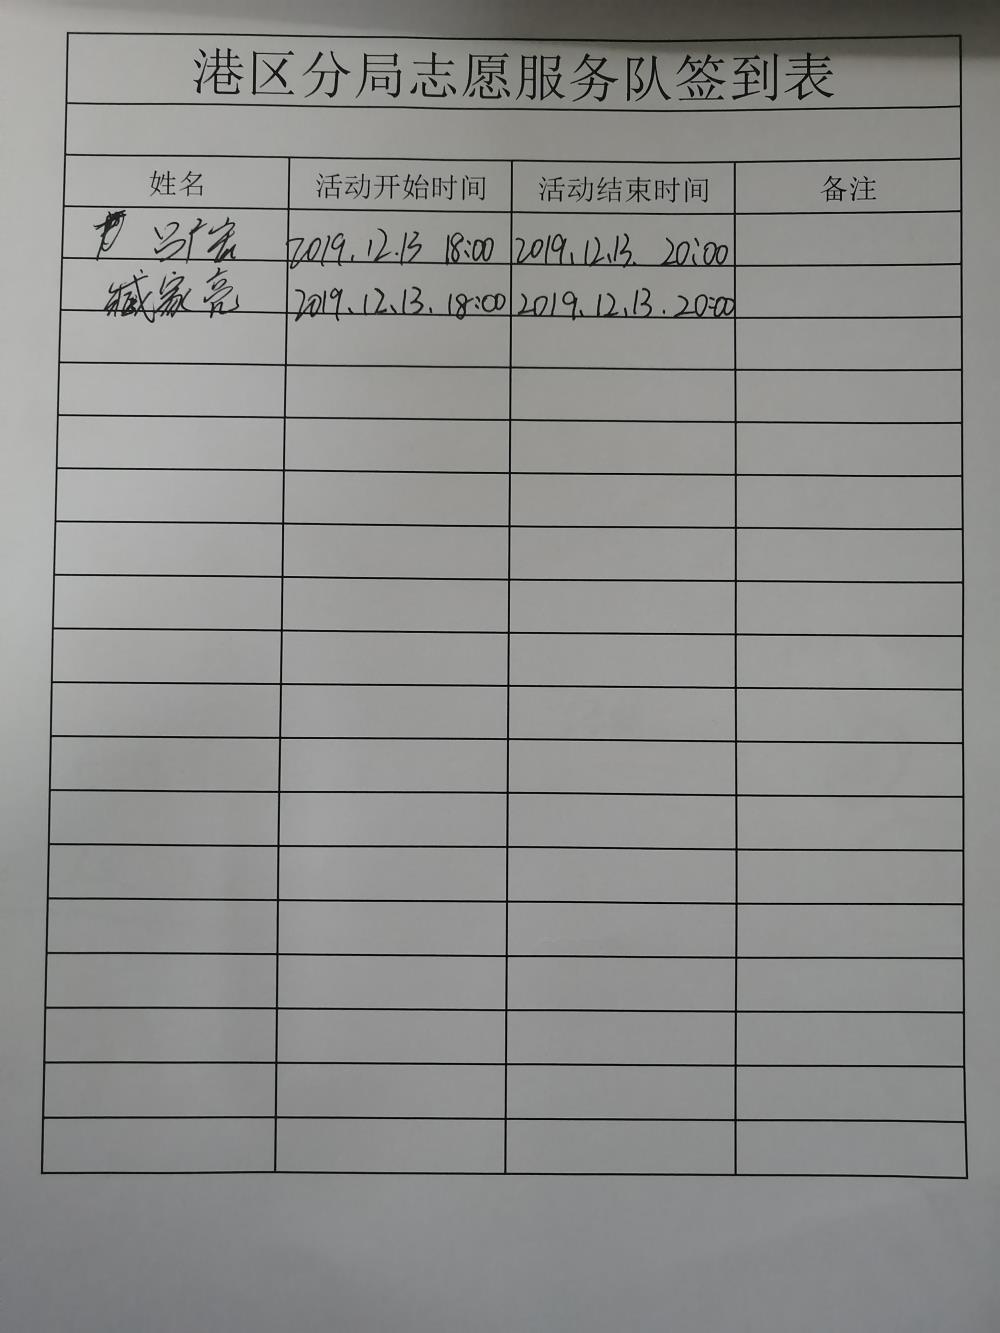 港区分局志愿服务队签到表
姓名 活动开始时间 活动结束时间 备注
2019.12.13 18:00 2019.12.13. 20:00
臧家亮 2019.12.13.18:00 2019.12.13.20:00